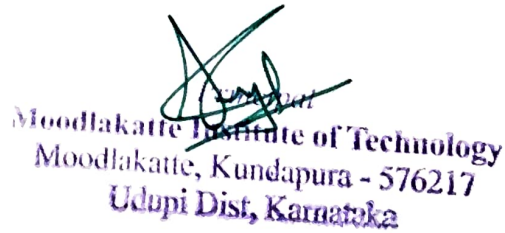 Moodlakatte Institute of Technology
Moodlakatte, Kundapura - 576217
Udupi Dist, Karnataka